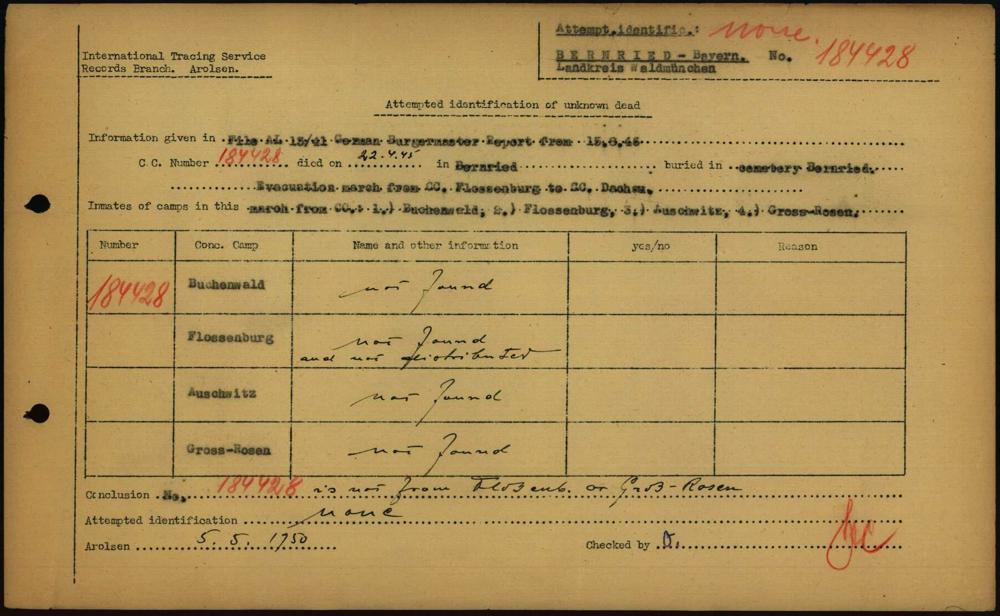 Attempt.identific.: none.
International Tracing Service
Records Branch. Arolsen.
BERNRIED - Bayern. No. 184428
Landkreis Waldmünchen
Attempted identification of unknown dead
Information given in File AL 13/41 German Burgermaster Report from 15.8.46
C.C. Number 184428 died on 22.4.45 in Bernried buried in cemetery Bernried.
Evacuation march from CC. Flossenburg to CC. Dachau.
Inmates of camps in this march from CC.: 1.) Buchenwald, 2.) Flossenburg, 3.) Auschwitz, 4.) Gross-Rosen.
Number Conc. Camp Name and other information yes/no Reason
184428 Buchenwald not found
Flossenburg not found
and not distributed
Auschwitz not found
Gross-Rosen not found
Conclusion No. 184428 is not from Floßenb. or Groß-Rosen
Attempted identification none
Arolsen 5. 5. 1950 Checked by